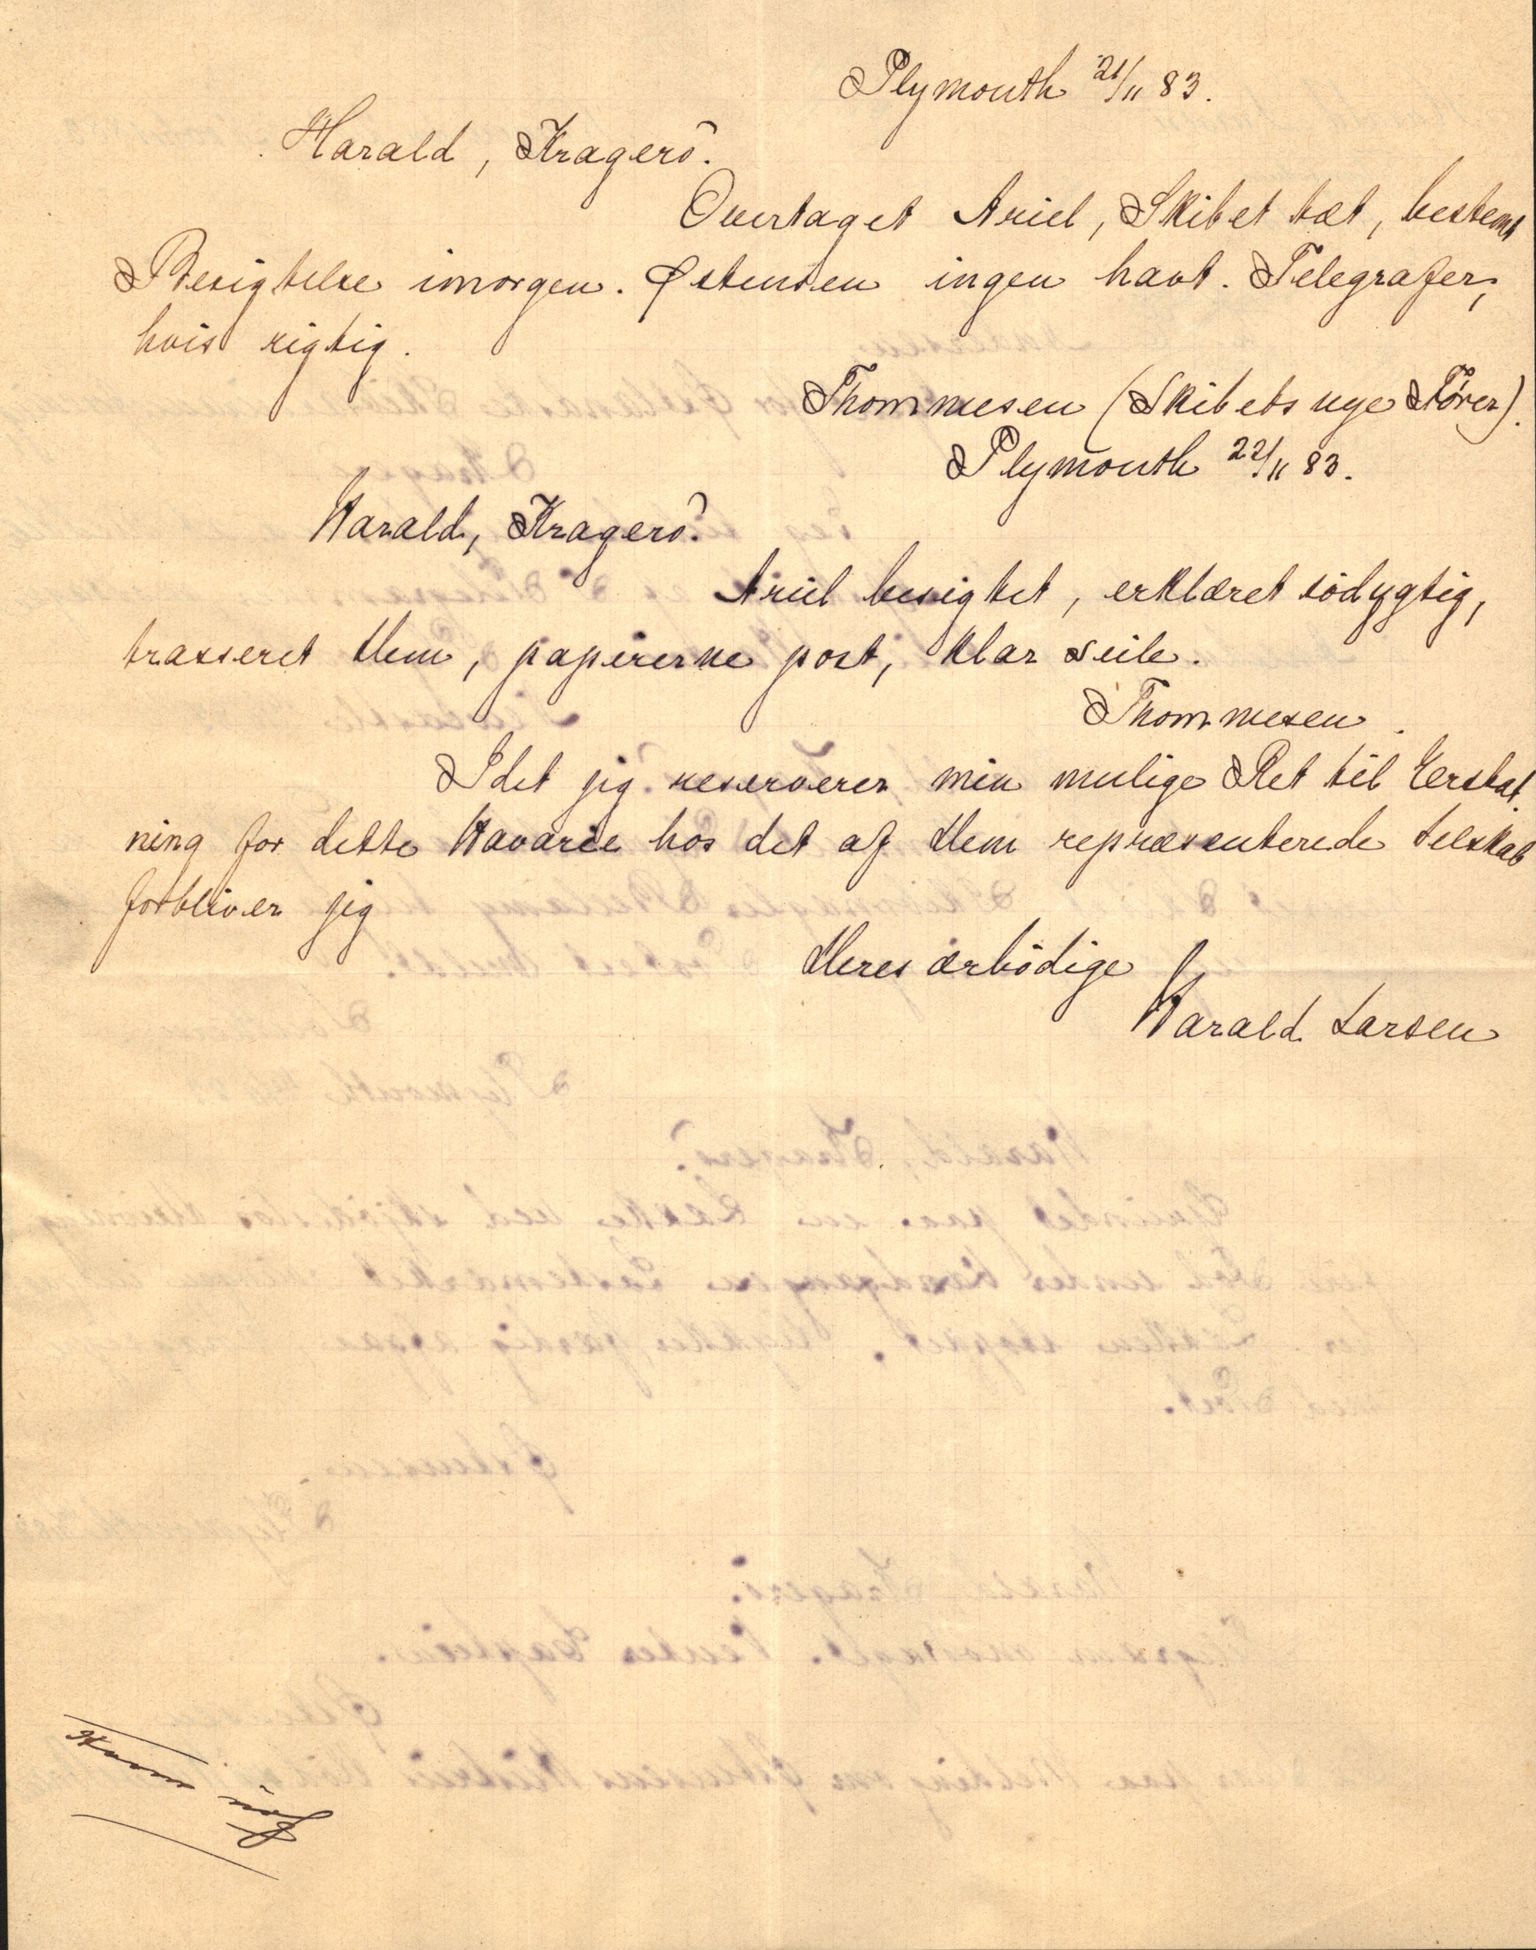 Plymouth 21/11 83.
Harald, Kragerö.
Overtaget Ariel, Skibet tæt, bestemt
Besigtelse imorgen. Østensen ingen havt. Telegrafer,
hvis rigtig.
Thommesen (Skibets nye Fører).
Plymouth 22/11 83.
Harald, Kragerö.
Ariel besigtet, erklæret södygtig,
trasseret Dem, papirerne post, klar seile.
Thommesen.
Idet jeg reserverer min mulige Ret til Erstat-
ning for dette Havarie hos det af Dem repræsenterede Selskab
forbliver jeg
Deres ærbödige
Harald Larsen